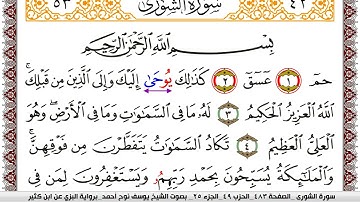 ٥٣ سورة الشورى ٤٢
بِسْمِ اللَّهِ الرَّحْمَٰنِ الرَّحِيمِ
حمٓ ١ عٓسٓقٓ ٢ كَذَٰلِكَ يُوحَىٰ إِلَيْكَ وَإِلَى الَّذِينَ مِن قَبْلِكَ
اللَّهُ الْعَزِيزُ الْحَكِيمُ ٣ لَهُ مَا فِي السَّمَٰوَٰتِ وَمَا فِي الْأَرْضِ وَهُوَ
الْعَلِيُّ الْعَظِيمُ ٤ تَكَادُ السَّمَٰوَٰتُ يَتَفَطَّرْنَ مِن فَوْقِهِنَّ
وَالْمَلَٰئِكَةُ يُسَبِّحُونَ بِحَمْدِ رَبِّهِمُ وَيَسْتَغْفِرُونَ لِمَن فِي
سورة الشورى الصفحة ٤٨٣ الحزب ٤٩ الجزء ٢٥ بصوت الشيخ يوسف نوح أحمد برواية البزي عن ابن كثير